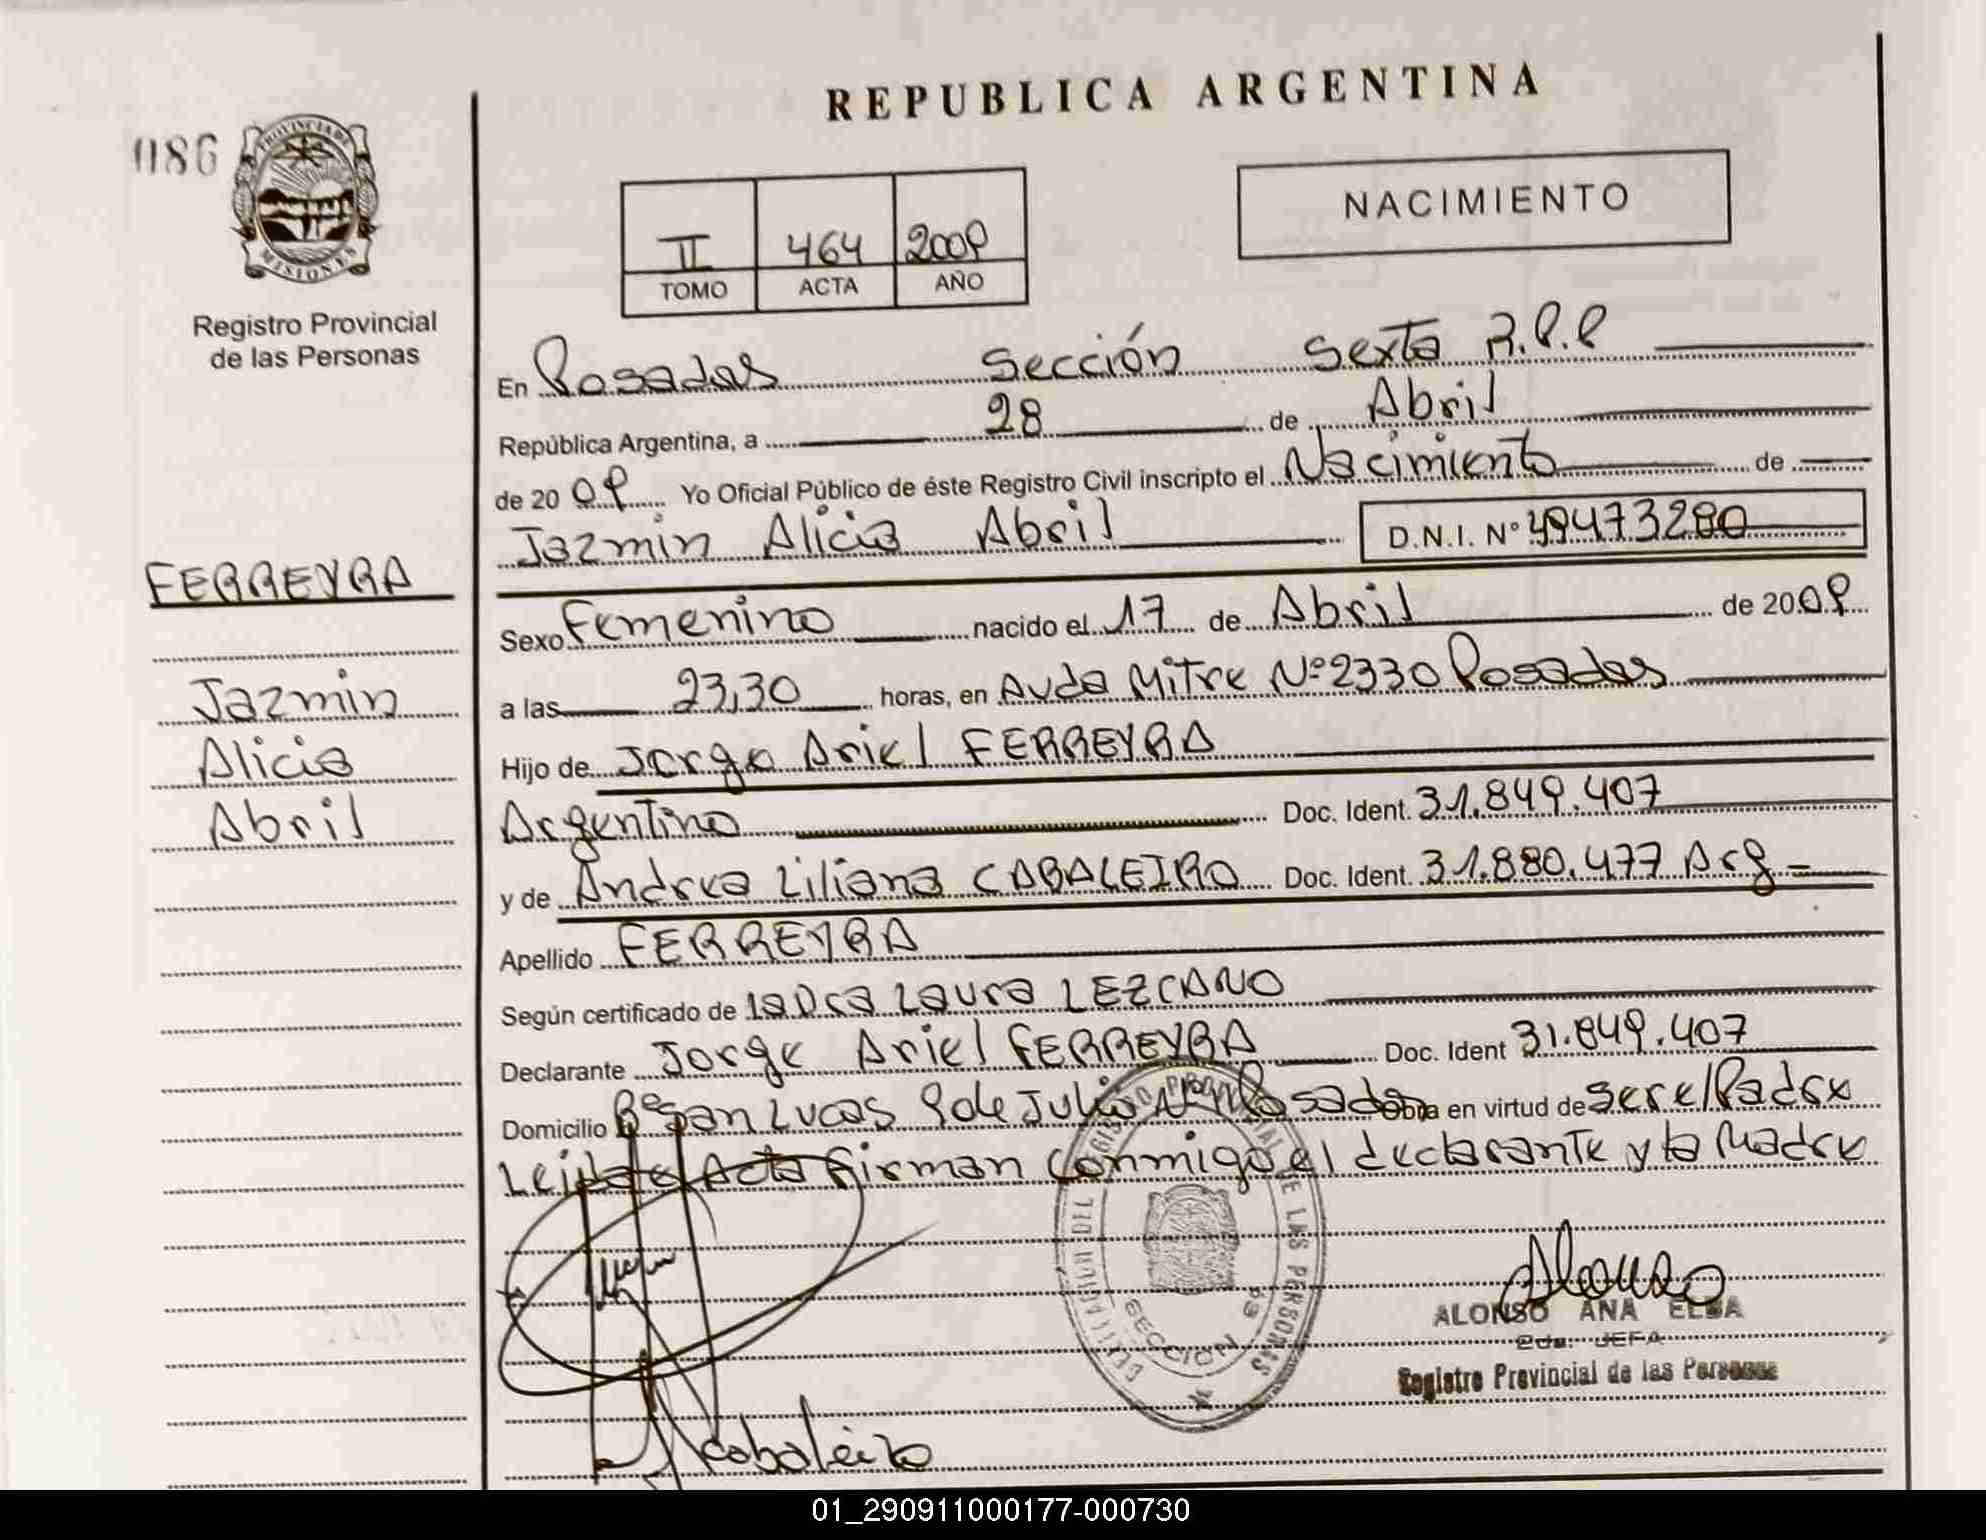 REPUBLICA ARGENTINA
086
PROVINCIA DE
MISIONES
Registro Provincial
de las Personas
NACIMIENTO
II 464 2009
TOMO ACTA AÑO
En Posadas Sección Sexta R.P.P
República Argentina, a 28 de Abril
de 2009 Yo Oficial Público de éste Registro Civil inscripto el Nacimiento de
Jazmin Alicia Abril D.N.I. Nº 49473280
FERREYRA
Jazmin
Alicia
Abril
Sexo Femenino nacido el 17 de Abril de 2009
a las 23,30 horas, en Avda Mitre Nº 2330 Posadas
Hijo de Jorge Ariel FERREYRA
Argentino Doc. Ident. 31.849.407
y de Andrea Liliana CABALEIRO Doc. Ident. 31.880.477 Arg =
Apellido FERREYRA
Según certificado de la Dra Laura LEZCANO
Declarante Jorge Ariel FERREYRA Doc. Ident 31.849.407
Domicilio Bº San Lucas 9 de Julio Posadas Obra en virtud de ser el Padre
Leida el Acta firman conmigo el declarante y la Madre
SECCION 6ª
DE LAS PERSONAS
Alonso
ALONSO ANA ELBA
2da. JEFA
Registro Provincial de las Personas
Acabaleiro
01_290911000177-000730